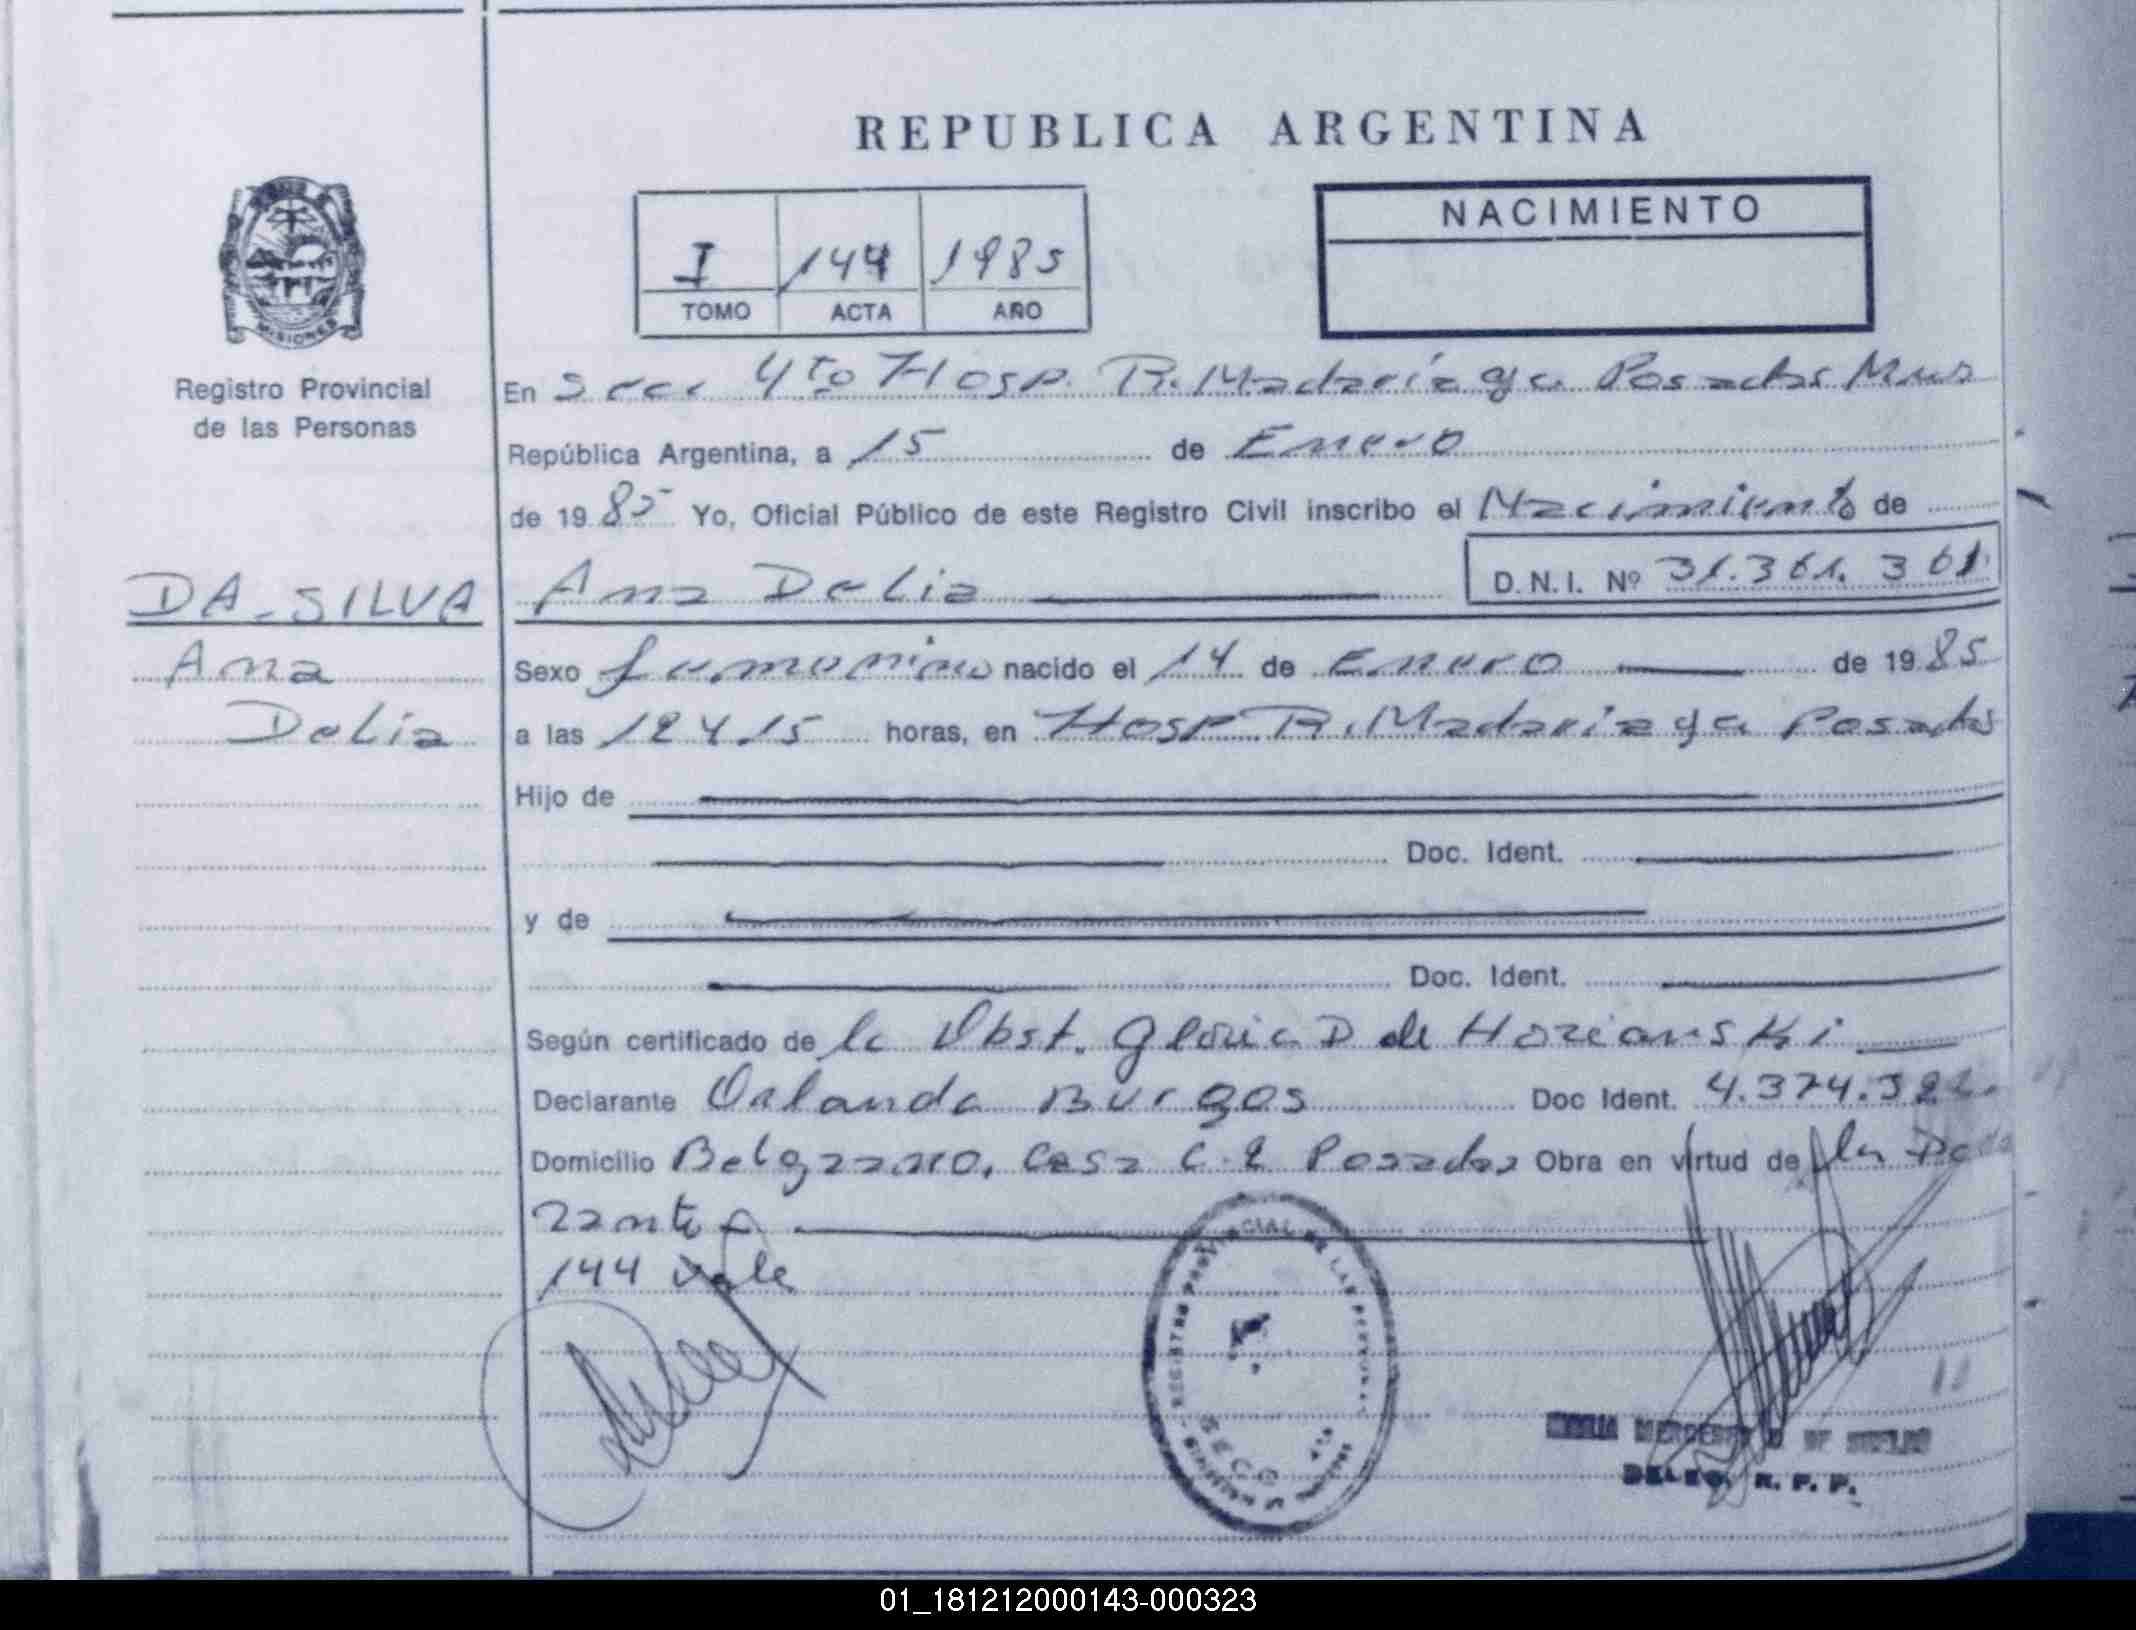 REPUBLICA ARGENTINA
I 144 1985
TOMO ACTA AÑO
NACIMIENTO
MISIONES
Registro Provincial
de las Personas
En Secc 4to Hosp. R. Madariaga Posadas Mnes
República Argentina, a 15 de Enero
de 1985 Yo, Oficial Público de este Registro Civil inscribo el Nacimiento de
DA-SILVA
Ana
Delia
Ana Delia D.N.I. Nº 31.361.361.
Sexo femenino nacido el 14 de Enero de 1985
a las 12 y 15 horas, en Hosp R. Madariaga Posadas
Hijo de
Doc. Ident.
y de
Doc. Ident.
Según certificado de la Obst. Gloria D de
Declarante Orlanda Burgos Doc Ident. 4.374.
Domicilio Belgrano, Casa C. 2 Posadas Obra en virtud de la Decla
rante
144 Vale
REGISTRO PROVINCIAL DE LAS PERSONAS
SECC 4ta
MISIONES
MERCEDES
DELEG. R. P. P.
01_181212000143-000323